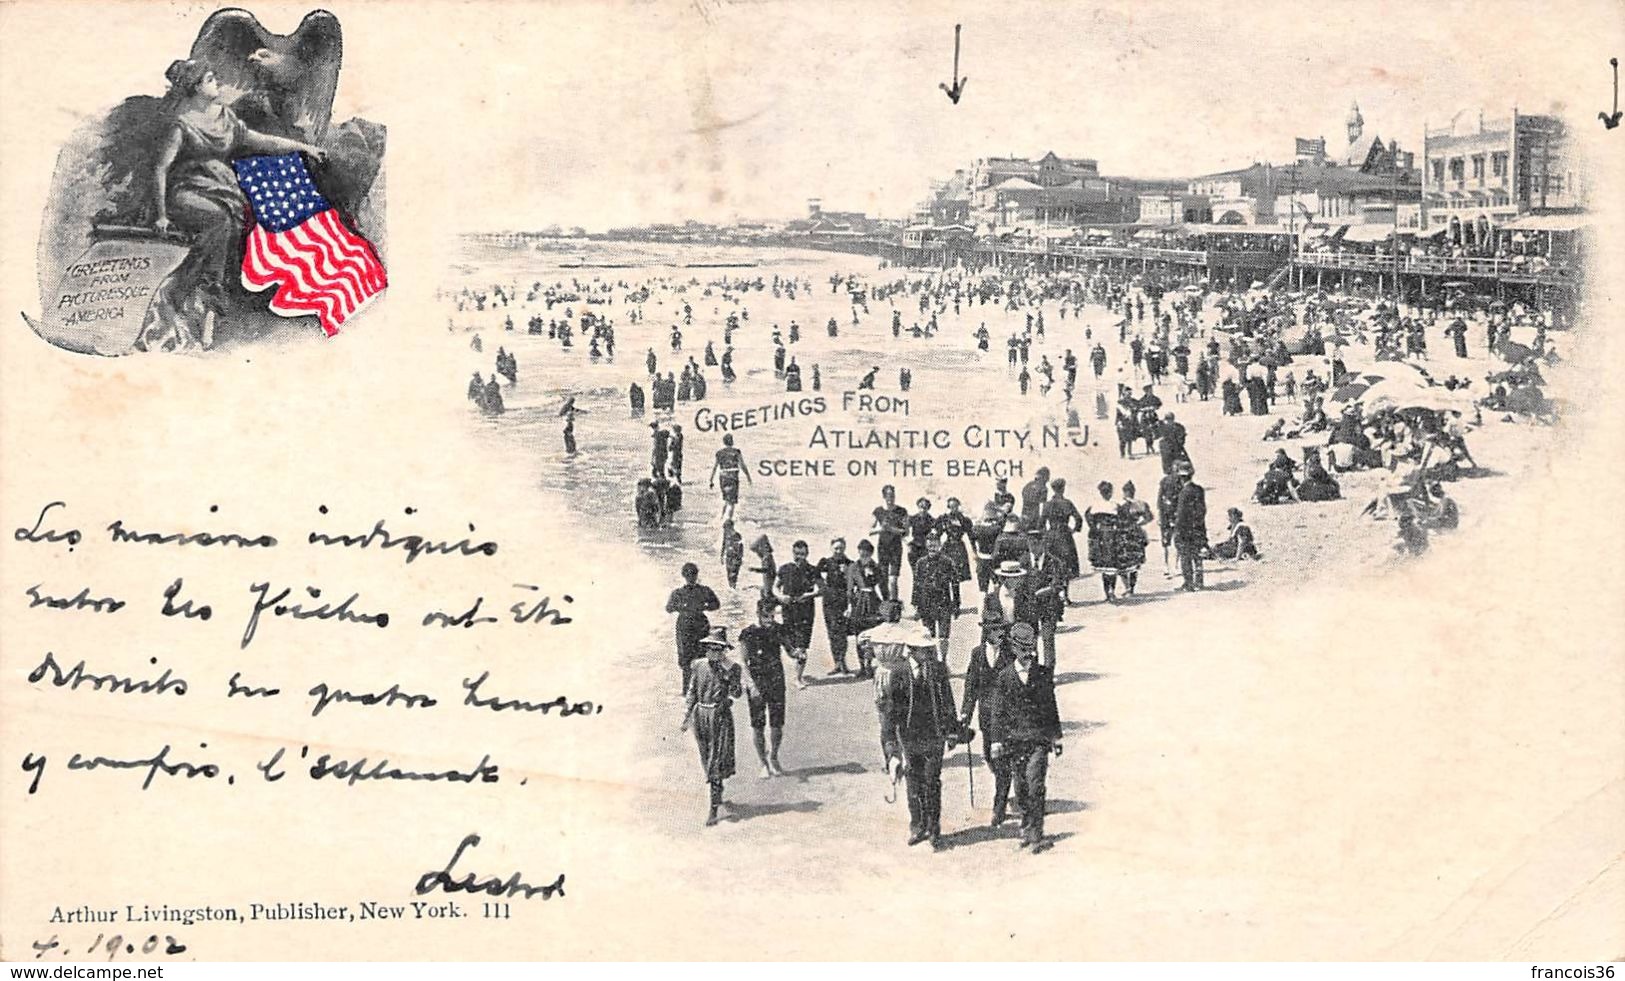 "GREETINGS
FROM
PICTURESQUE
AMERICA
GREETINGS FROM
ATLANTIC CITY, N.J.
SCENE ON THE BEACH
Les maisons indiquées
entre les flèches ont été
détruits en quatre heures.
y compris, l'esplanade.
Arthur Livingston, Publisher, New York. 111
4.19.02
www.delcampe.net
francois36